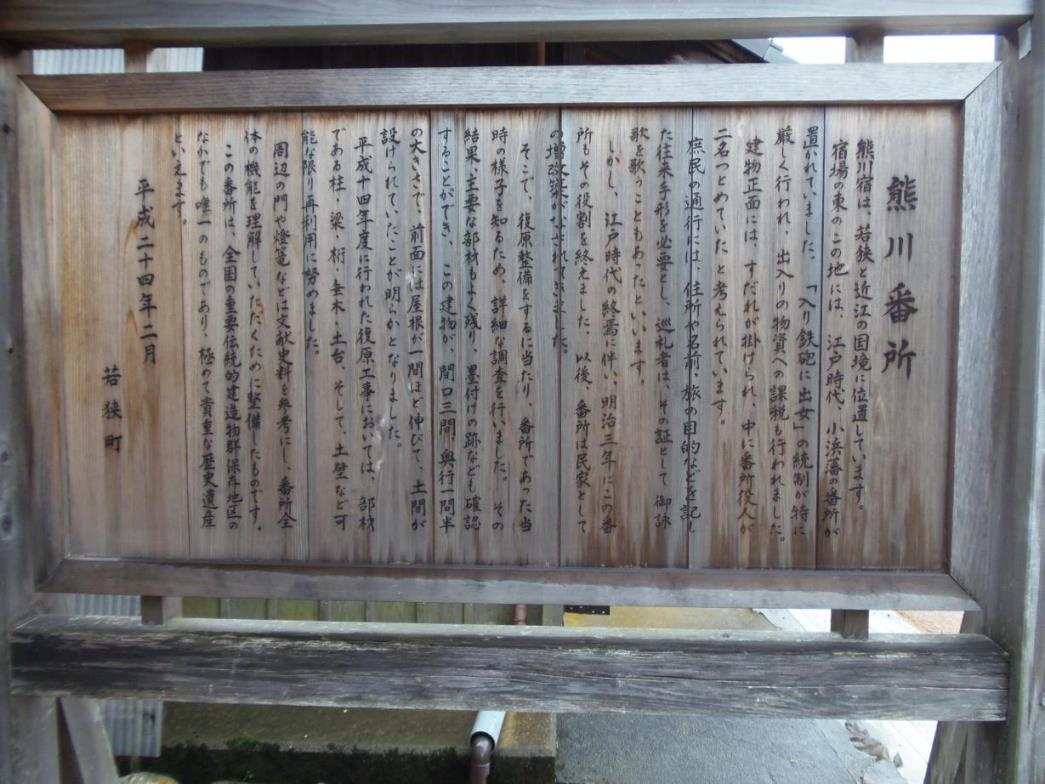 熊川番所
熊川宿は、若狭と近江の国境に位置しています。
宿場の東のこの地には、江戸時代、小浜藩の番所が
置かれていました。「入り鉄砲に出女」の統制が特に
厳しく行われ、出入りの物資への課税も行われました。
建物正面には、すだれが掛けられ、中に番所役人が
二名つとめていたと考えられています。
庶民の通行には、住所や名前、旅の目的などを記し
た往来手形を必要とし、巡礼者は、その証として御詠
歌を歌うこともあったといいます。
しかし、江戸時代の終焉に伴い、明治三年にこの番
所もその役割を終えました。以後、番所は民家として
の増改築がなされてきました。
そこで、復原整備をするに当たり、番所であった当
時の様子を知るため、詳細な調査を行いました。その
結果、主要な部材もよく残り、墨付けの跡なども確認
することができ、この建物が、間口三間、奥行一間半
の大きさで、前面には屋根が一間ほど伸びて、土間が
設けられていたことが明らかとなりました。
平成十四年度に行われた復原工事においては、部材
である柱・梁・桁・垂木・土台、そして、土壁など可
能な限り再利用に努めました。
周辺の門や燈篭などは文献史料を参考にし、番所全
体の機能を理解していただくために整備したものです。
この番所は、全国の重要伝統的建造物群保存地区の
なかでも唯一のものであり、極めて貴重な歴史遺産
といえます。
平成二十四年二月
若狭町